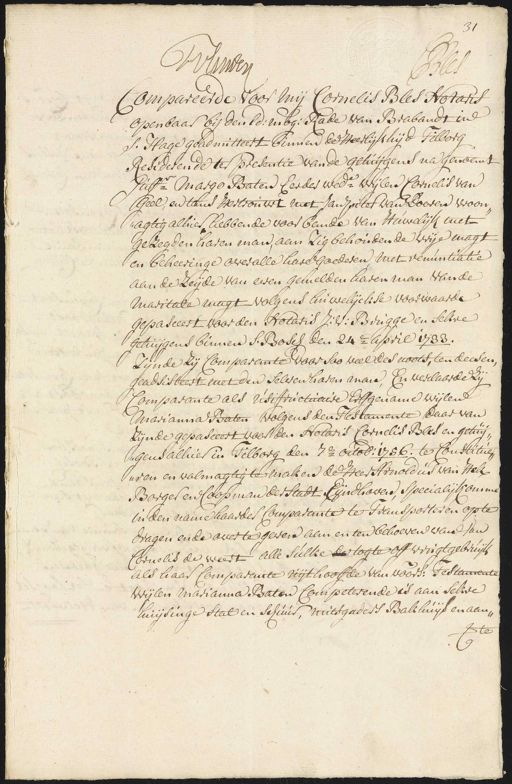 31
Bles
Compareerde voor mij Cornelis Bles Notaris
openbaar bij den Ed: mog: Rade van Brabandt in
s Hage geadmitteert binnen de Heerlijkhijd Tilborg
Residerende te presentie van de getuijgens na genoemt
Juffr. Margo Baten Eerder wedᵉ wijlen Cornelis van
en thans Hertrouwt met Jan Peter van Loeven woon-
agtig alhier, hebbende voor bende van Huwelijk met
Gezegden haren man, aan Zig behoudende vrije magt
en beheeringe over alle hare goedesen met renuntiatie
aan de Zeijde van eren gemelden haren man van de
Maritale magt volgens huwelijckse voorwaarde
gepasseert voor den Notaris J: V: Brugge en sekere
getuijgens binnen s Bosch den 24 April 1733.
Zijnde Zij Comparante voor soo veel des noots, ten desen,
geadsisteert met den selven haren man, En verklaarde Zij
Comparante als usufructuaire Erffgename wijlen
Marianna Baten volgens den Testamente daar van
Zijnde gepasseert voor den Notaris Cornelis Bles en getuij-
gens alhier in Tilborg den 7 octob: 1756. te Constitu-
eren en volmagtig te maken de Heer Arnoldus van
Borger en Coopman der Stadt Eijndhoven, specialijk omme
in den naame haarder Comparante te Transporteren op te
dragen ende over te geven aan en ten behoeven van Jan
Cornelis de weert alle sulke togte off vrugtgebruijk
als haar Comparante uijt hooffde van voors: Testamente
wijlen Marianna Baten Competerende is aan sekere
huijsinge Stal en Schuer, mitsgaders Bakhuijs en aan-